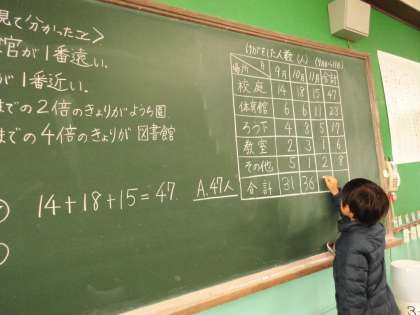 見て分かったこと>
官が1番遠い.
が1番近い.
までの2倍のきょりがようち園
までの4倍のきょりが図書館
14+18+15=47 A.47人
けがをした人数(人) (9月~11月)
場所 月 9月 10月 11月 合計
校庭 14 18 15 47
体育館 6 6 11 23
ろう下 4 8 5 17
教室 2 3 1 6
その他 5 1 2 8
合計 31 36